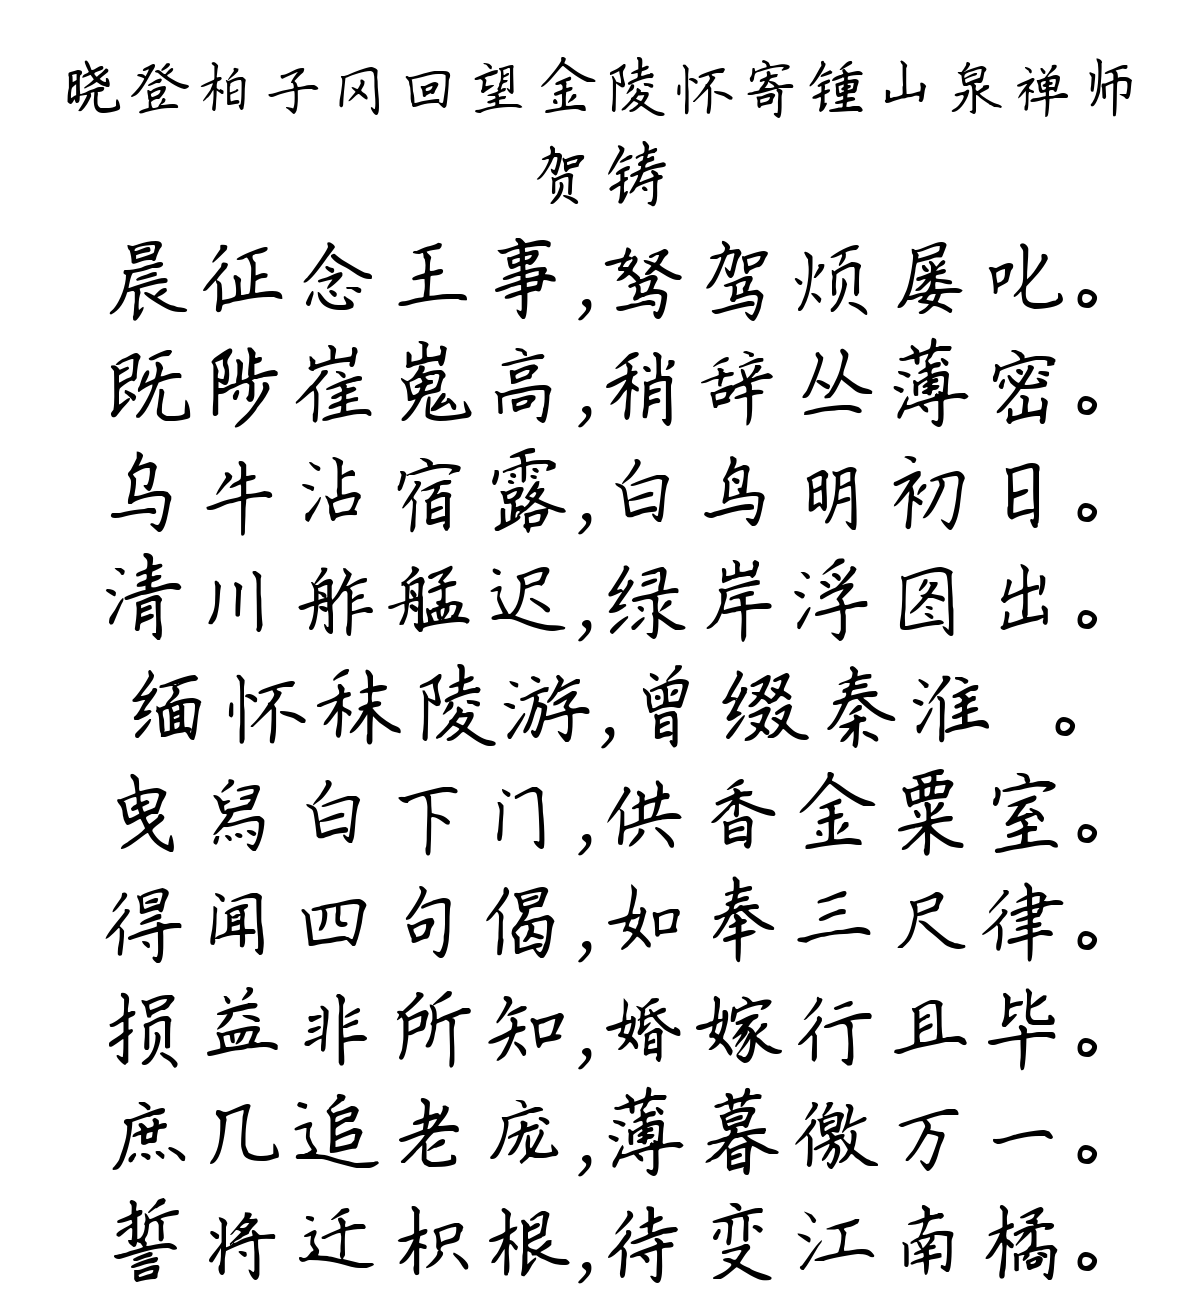 晓登柏子冈回望金陵怀寄锺山泉禅师
贺铸
晨征念王事,驽驾烦屡叱。
既陟崔嵬高,稍辞丛薄密。
乌牛沾宿露,白鸟明初日。
清川舴艋迟,绿岸浮图出。
缅怀秣陵游,曾缀秦淮 。
曳舄白下门,供香金粟室。
得闻四句偈,如奉三尺律。
损益非所知,婚嫁行且毕。
庶几追老庞,薄暮儌万一。
誓将迁枳根,待变江南橘。